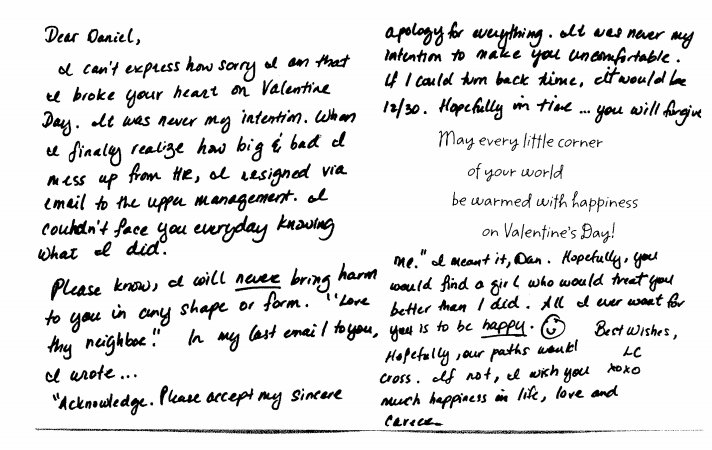 Dear Daniel,
I can't express how sorry I am that
I broke your heart on Valentine
Day. It was never my intention. When
I finally realize how big & bad I
mess up from HR, I resigned via
email to the upper management. I
couldn't face you everyday knowing
what I did.
Please know, I will never bring harm
to you in any shape or form. "Love
thy neighbor." In my last email to you,
I wrote...
"Acknowledge. Please accept my sincere
apology for everything. It was never my
intention to make you uncomfortable.
If I could turn back time, it would be
12/30. Hopefully in time ... you will forgive
May every little corner
of your world
be warmed with happiness
on Valentine's Day!
me." I meant it, Dan. Hopefully, you
would find a girl who would treat you
better than I did. All I ever want for
you is to be happy. ☺ Best Wishes,
Hopefully, our paths would LC
cross. If not, I wish you xoxo
much happiness in life, love and
career